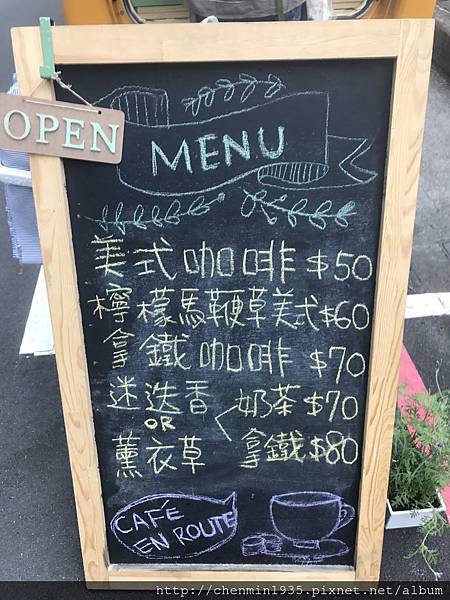 OPEN
MENU
美式咖啡 $50
檸檬馬鞭草美式 $60
拿鐵咖啡 $70
迷迭香 奶茶 $70
OR
薰衣草 拿鐵 $80
CAFÉ
EN ROUTE
http://chenmin1935.pixnet.net/album